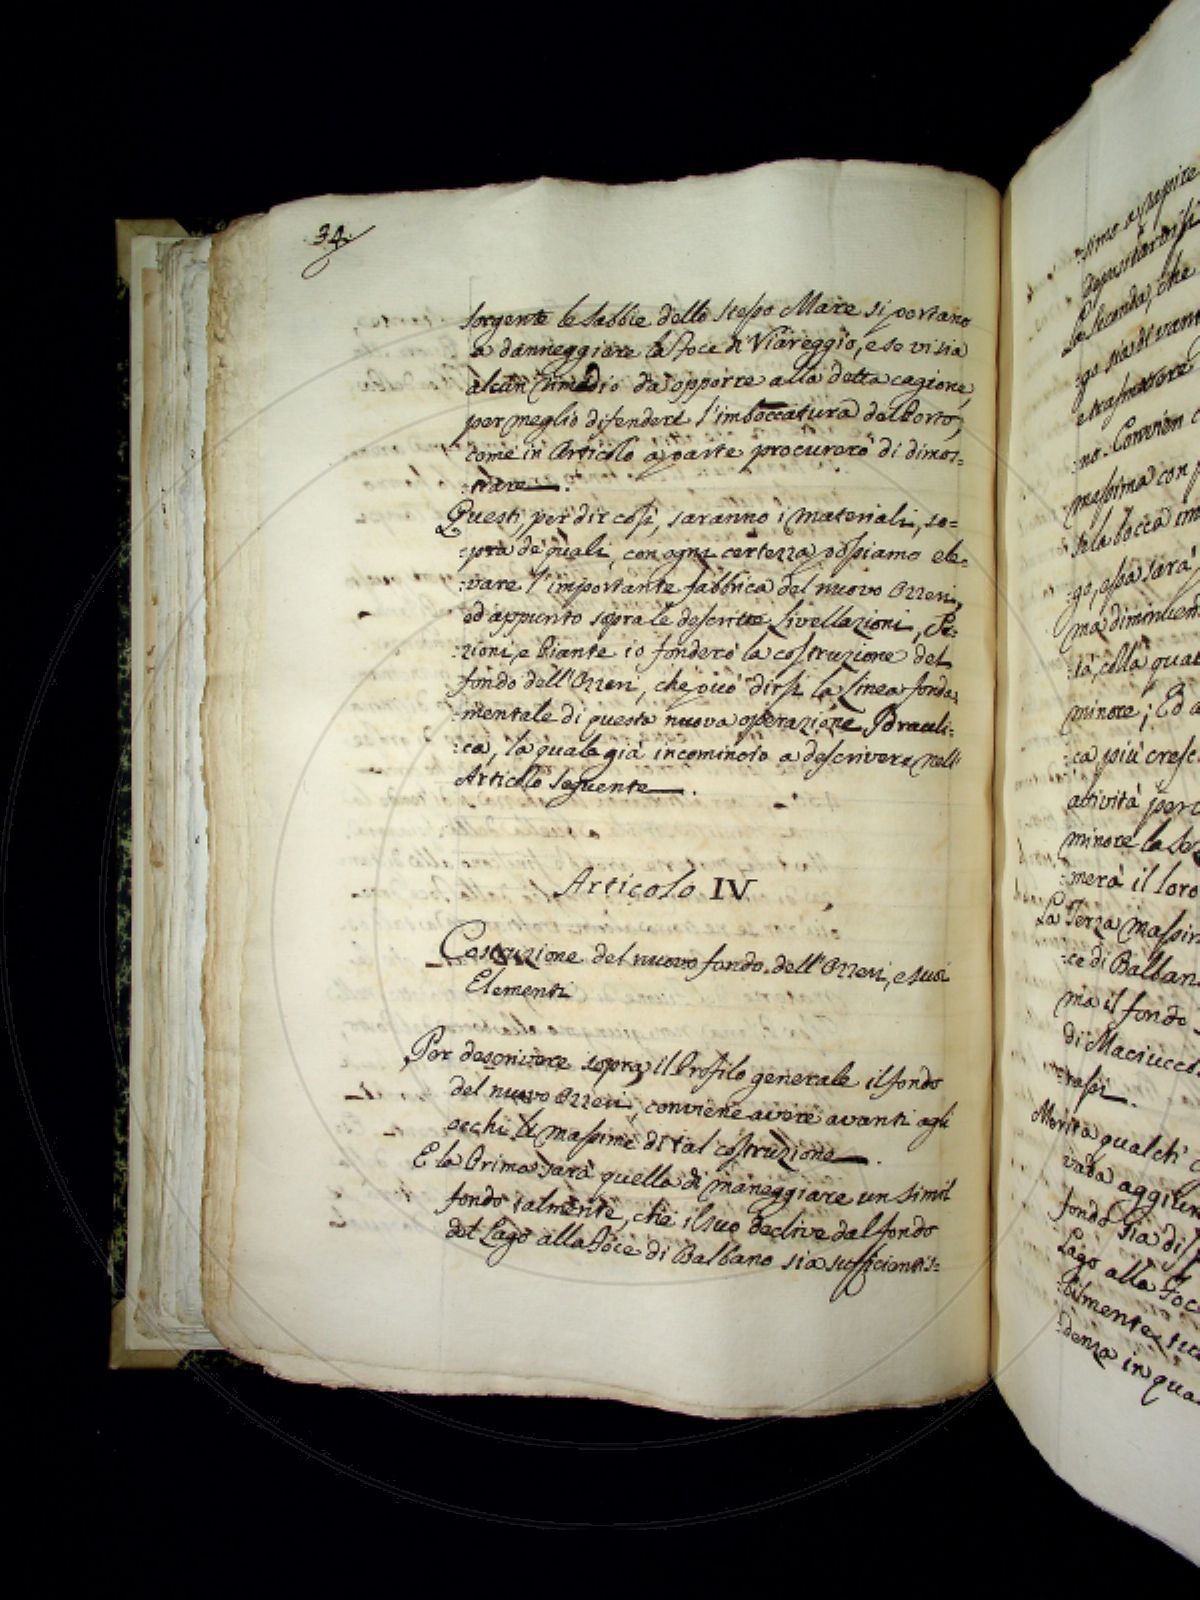 34.
sorgente le sabbie dello stesso Mare si portano
a danneggiare la Foce di Viareggio, e se vi sia
alcun rimedio da opporre alla detta cagione,
per meglio difendere l'imboccatura del Porto,
come in Articolo a parte procurerò di dimos=
:trare.
Questi per dir così, saranno i materiali, so=
:pra de quali, con ogni certezza possiamo ele=
:vare l'importante fabbrica del nuovo Ozzeri,
ed appunto sopra le descritte Livellazioni, Se=
:zioni, e Piante io fonderò la costruzione del
fondo dell'Ozzeri, che può dirsi la Linea fonda
mentale di questa nuova operazione Idrauli=
:ca, la quale già incomincio a descrivere nell'
Articolo seguente.
Articolo IV
Costruzione del nuovo fondo dell'Ozzeri, e suoi
Elementi
Per descrivere sopra il Profilo generale il fondo
del nuovo Ozzeri, conviene avere avanti agli
occhi le massime di tal costruzione.
E la Prima sarà quella di maneggiare un simil
fondo talmente, che il suo declive dal fondo
del Lago alla Foce di Balbano sia sufficientis=
:simo a
La seconda, che
:go sia di
:no. Convien
massima con
la bocca
:go, essa sarà
:ma
:tà, colla
minore; Ed a
:ca più
attività
minore la
:merà il loro
La Terza
:ce di Balbano
ma il fondo
di
:rassi.
Merita qualch'
vada
fondo sia di
Lago alla Foce
:bilmente
:denza in